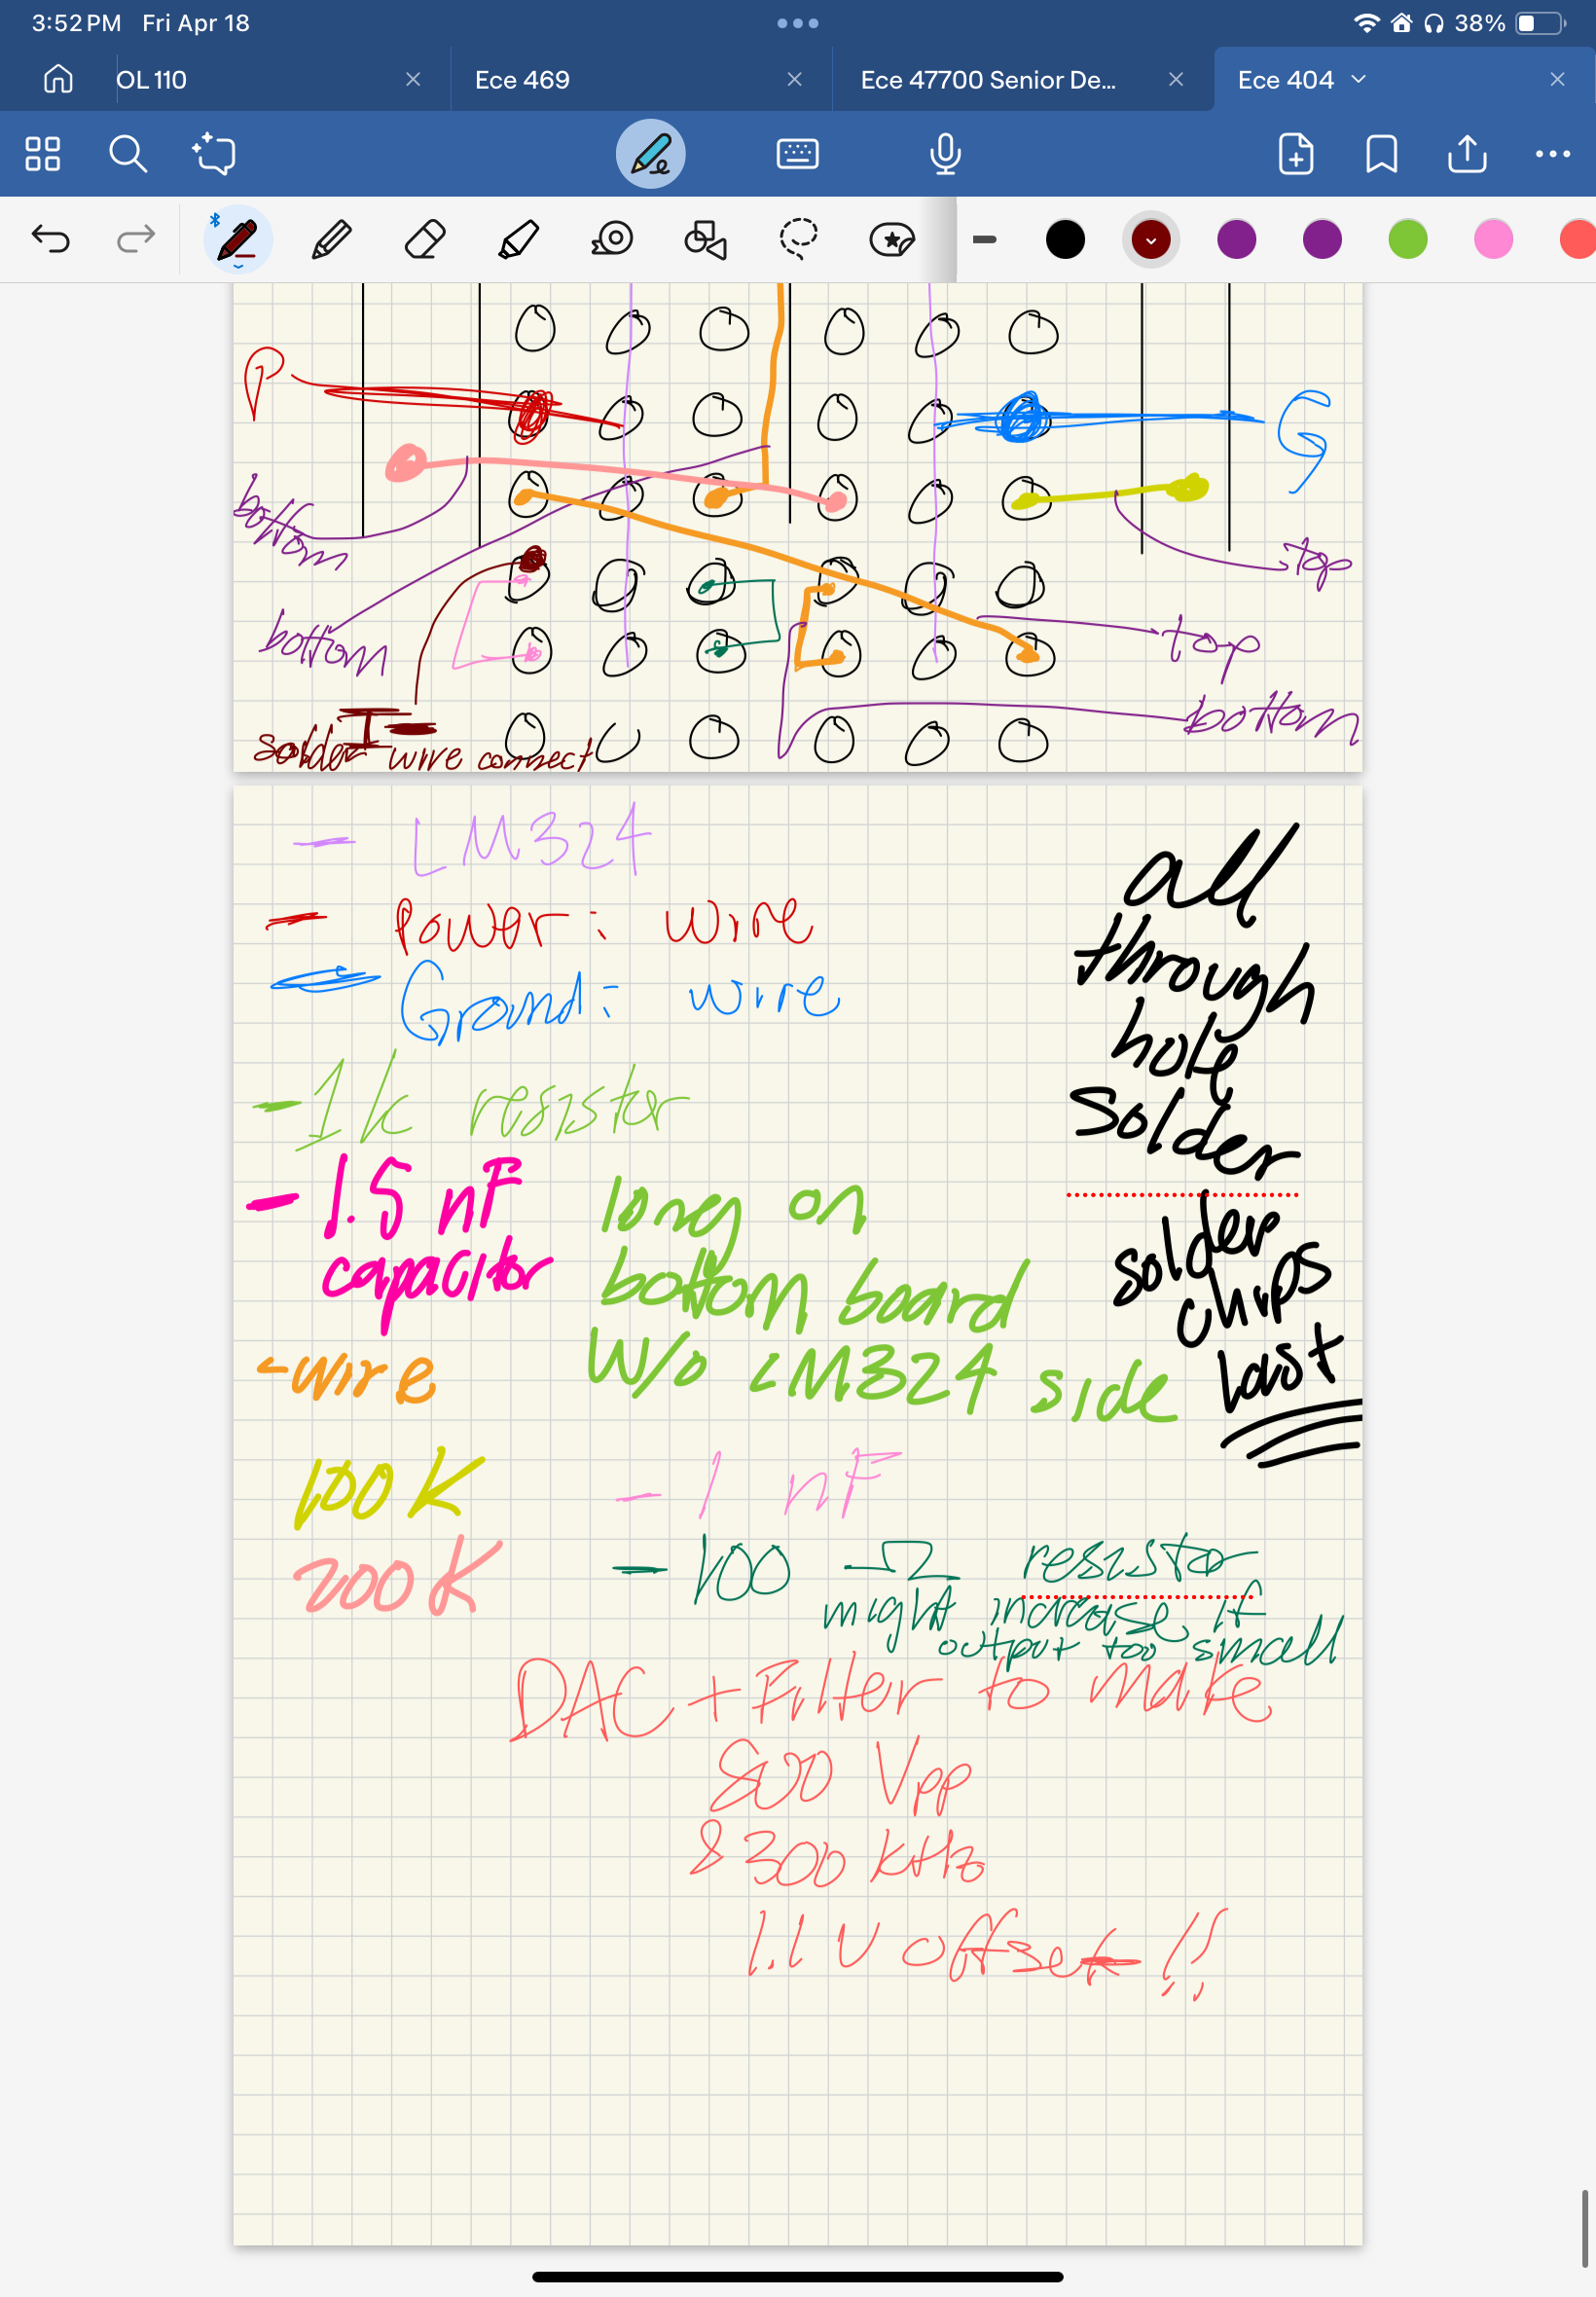 3:52 PM Fri Apr 18
38%
OL 110
Ece 469
Ece 47700 Senior De...
Ece 404
P
G
bottom
top
bottom
top
bottom
solder wire connect
- LM324
- Power: wire
- Ground: wire
- 1k resistor
- 1.5 nF
capacitor
long on
bottom board
w/o LM324 side
- wire
all
through
hole
solder
solder
chips
last
100K
- 1 nF
200K
- 100 Ω resistor
might increase if
output too small
DAC + Filter to make
800 Vpp
& 300 kHz
1.1 V offset !!